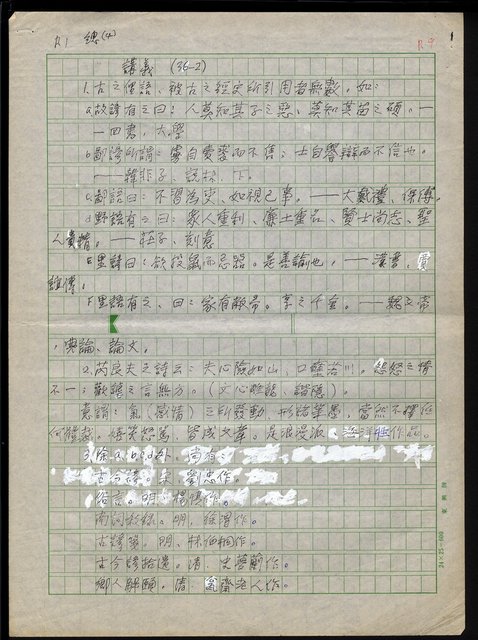 R1 總(4)
R9
講義 (36-2)
1.古之俚語、被古之經史所引用者無數，如：
a.故諺有之曰：人莫知其子之惡、莫知其苗之碩。—
—四書，大學
b.鄙諺所謂：虜自賣裘而不售；士自譽辯而不信也。
——韓非子、說林、下。
c.鄙語曰：不習為吏、如視己事。——大戴禮、保傅。
d.野語有之曰：眾人重利、廉士重名、賢士尚志、聖
人貴精。——莊子、刻意
E里諺曰：欲投鼠而忌器。是善諭也，——漢書、賈
誼傳。
F里語有之、曰：家有敝帚。享之千金。——魏文帝
，典論、論文。
2.芮良夫之詩云：夫心險如山、口壅若川。怨怒之情
不一；歡謔之言無方。(文心雕龍、諧隱)。
意謂：氣(感情)之所發動、形諸筆墨，當然不擇任
何體裁。嬉笑怒罵，皆成文章。是浪漫派、海洋性作品。
3)除a.b.c.d外、尚有：
古今諺。宋、劉忠作。
俗言。明、楊慎作。
南詞敘錄。明、徐渭作。
古諺
古今諺拾遺。清、史夢蘭作。
鄉人解頤。清、甕齋老人作。
24×25=600